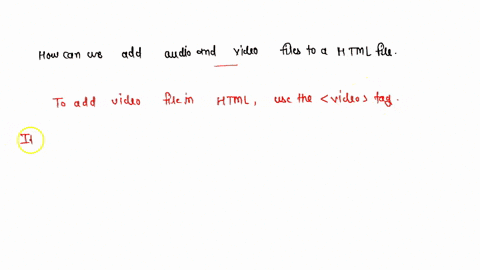 How can we add audio and video files to a HTML file.
To add video file in HTML, use the <video> tag.
It